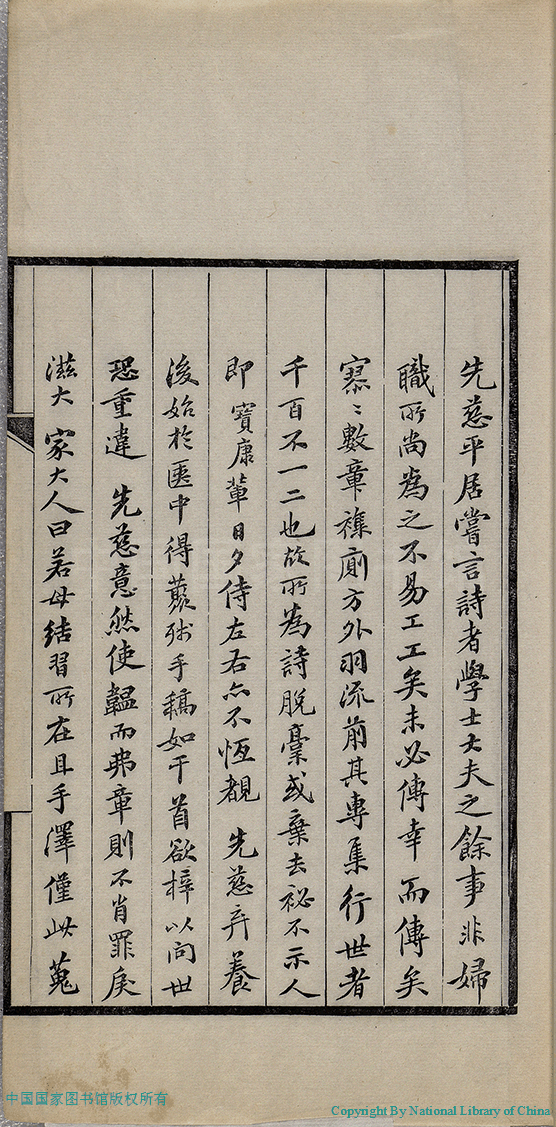 先慈平居嘗言詩者學士大夫之餘事非婦
職所尚為之不易工工矣未必傳幸而傳矣
寥寥數章襍廁方外羽流前其專集行世者
千百不一二也故所為詩脫稾或棄去祕不示人
即寶康輩日夕侍左右亦不恆覩 先慈弃養
後始於匧中得叢殘手稿如干首欲梓以問世
恐重違 先慈意然使韞而弗章則不肖罪戾
滋大 家大人曰若母結習所在且手澤僅此蒐
中国国家图书馆版权所有
Copyright By National Library of China